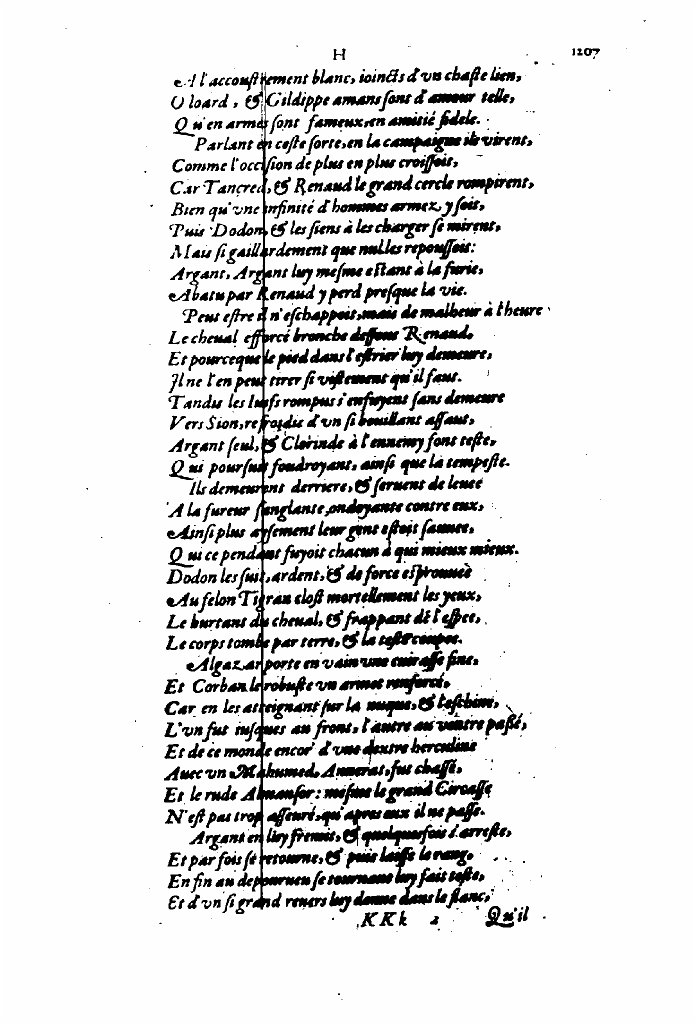 H 1207
A l'accoustrement blanc, ioincts d'vn chaste lien,
O loard, & Gildippe amans sont d'amour telle,
Qu'en armes sont fameux, en amitié fidele.
Parlant en ceste sorte, en la campaigne ils virent,
Comme l'occision de plus en plus croissoit,
Car Tancred, & Renaud le grand cercle rompirent,
Bien qu'vne infinité d'hommes armez y soit,
Puis Dodon, & les siens à les charger se mirent,
Mais si gaillardement que nul les repoussoit:
Argant, Argant luy mesme estant à la furie,
Abatu par Renaud y perd presque la vie.
Peut estre il n'eschappoit, mais de malheur à l'heure
Le cheual efforcé bronche dessous Renaud,
Et pourceque le pied dans l'estrier luy demeure,
Il ne l'en peut tirer si vistement qu'il faut.
Tandis les Iuifs rompus s'enfuyent sans demeure
Vers Sion, refroidis d'vn si bouillant assaut,
Argant seul, & Clorinde à l'ennemy font teste,
Qui poursuit foudroyant, ainsi que la tempeste.
Ils demeurent derriere, & seruent de leuee
A la fureur sanglante, ondoyante contre eux,
Ainsi plus aysement leur gent estoit sauuee,
Qui ce pendant fuyoit chacun à qui mieux mieux.
Dodon les suit, ardent, & de force esprouuee
Au felon Tigran clost mortellement les yeux,
Le hurtant du cheual, & frappant de l'espee,
Le corps tombe par terre, & la teste coupee.
Algazar porte en vain vne cuirasse fine,
Et Corban le robuste vn armet renforcé,
Car en les atteignant sur la nuque, & l'eschine,
L'vn fut iusques au front, l'autre au ventre passé,
Et de ce monde encor' d'vne dextre herculine
Auec vn Mahumed, Amurat, fut chassé,
Et le rude Almansor: mesme le grand Circasse
N'est pas trop asseuré, qu'apres eux il ne passe.
Argant en luy fremit, & quelquefois s'arreste,
Et par fois se retourne, & puis laisse le rang,
En fin au depourueu se tournant luy fait teste,
Et d'vn si grand reuers luy donne dans le flanc,
KKk 2 Qu'il